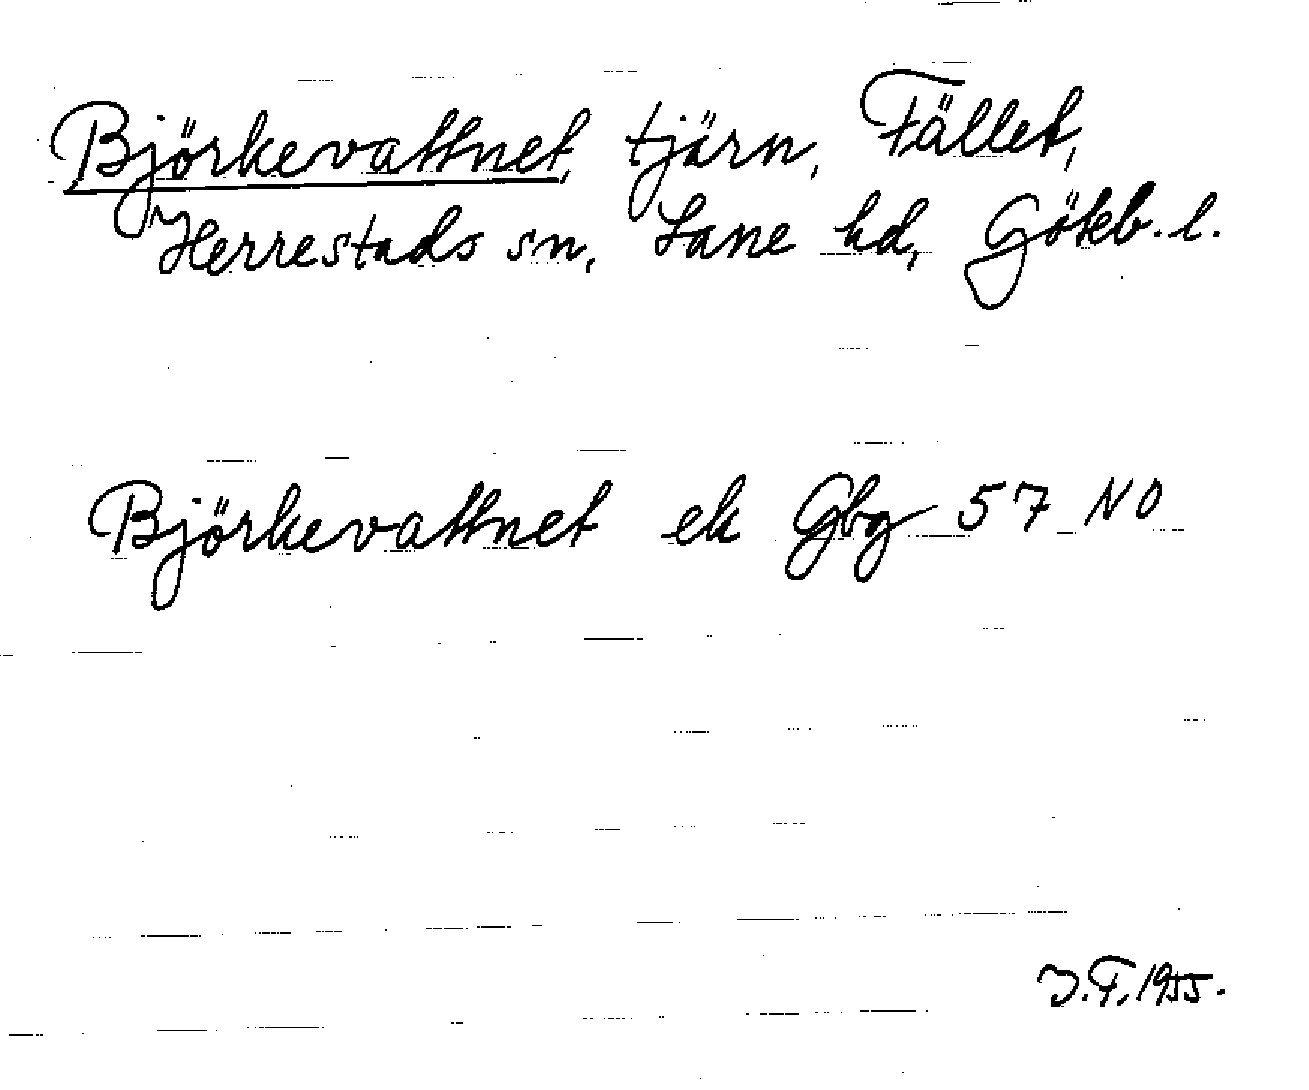 Björkevattnet, tjärn, Fället,
Herrestads sn, Lane hd, Göteb. l.
Björkevattnet ek Gbg 57 NO
J.F. 1955.